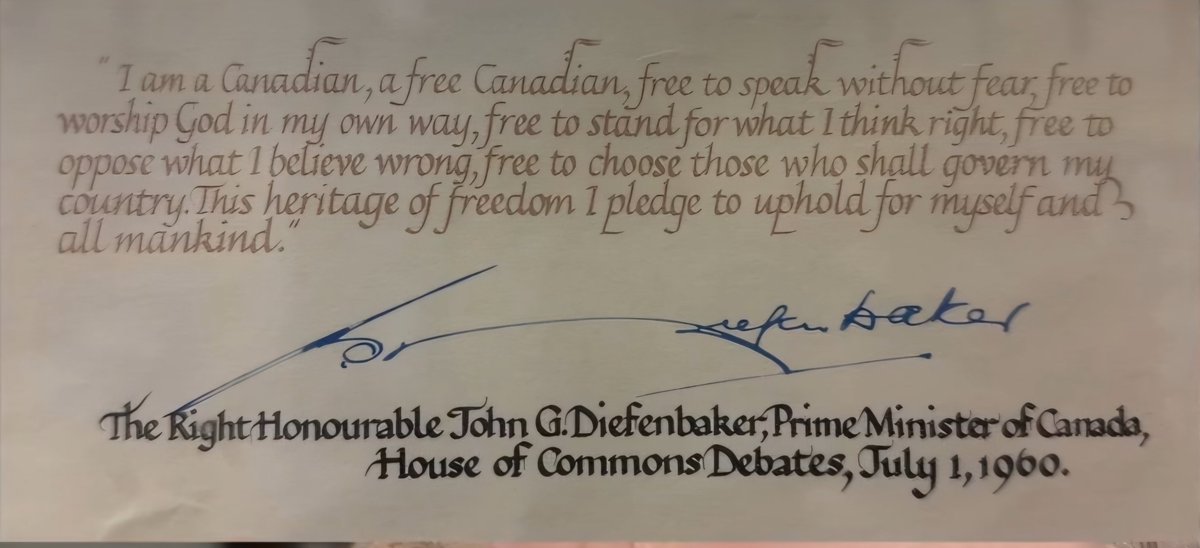 "I am a Canadian, a free Canadian, free to speak without fear, free to
worship God in my own way, free to stand for what I think right, free to
oppose what I believe wrong, free to choose those who shall govern my
country. This heritage of freedom I pledge to uphold for myself and
all mankind."
Diefenbaker
The Right Honourable John G. Diefenbaker, Prime Minister of Canada,
House of Commons Debates, July 1, 1960.